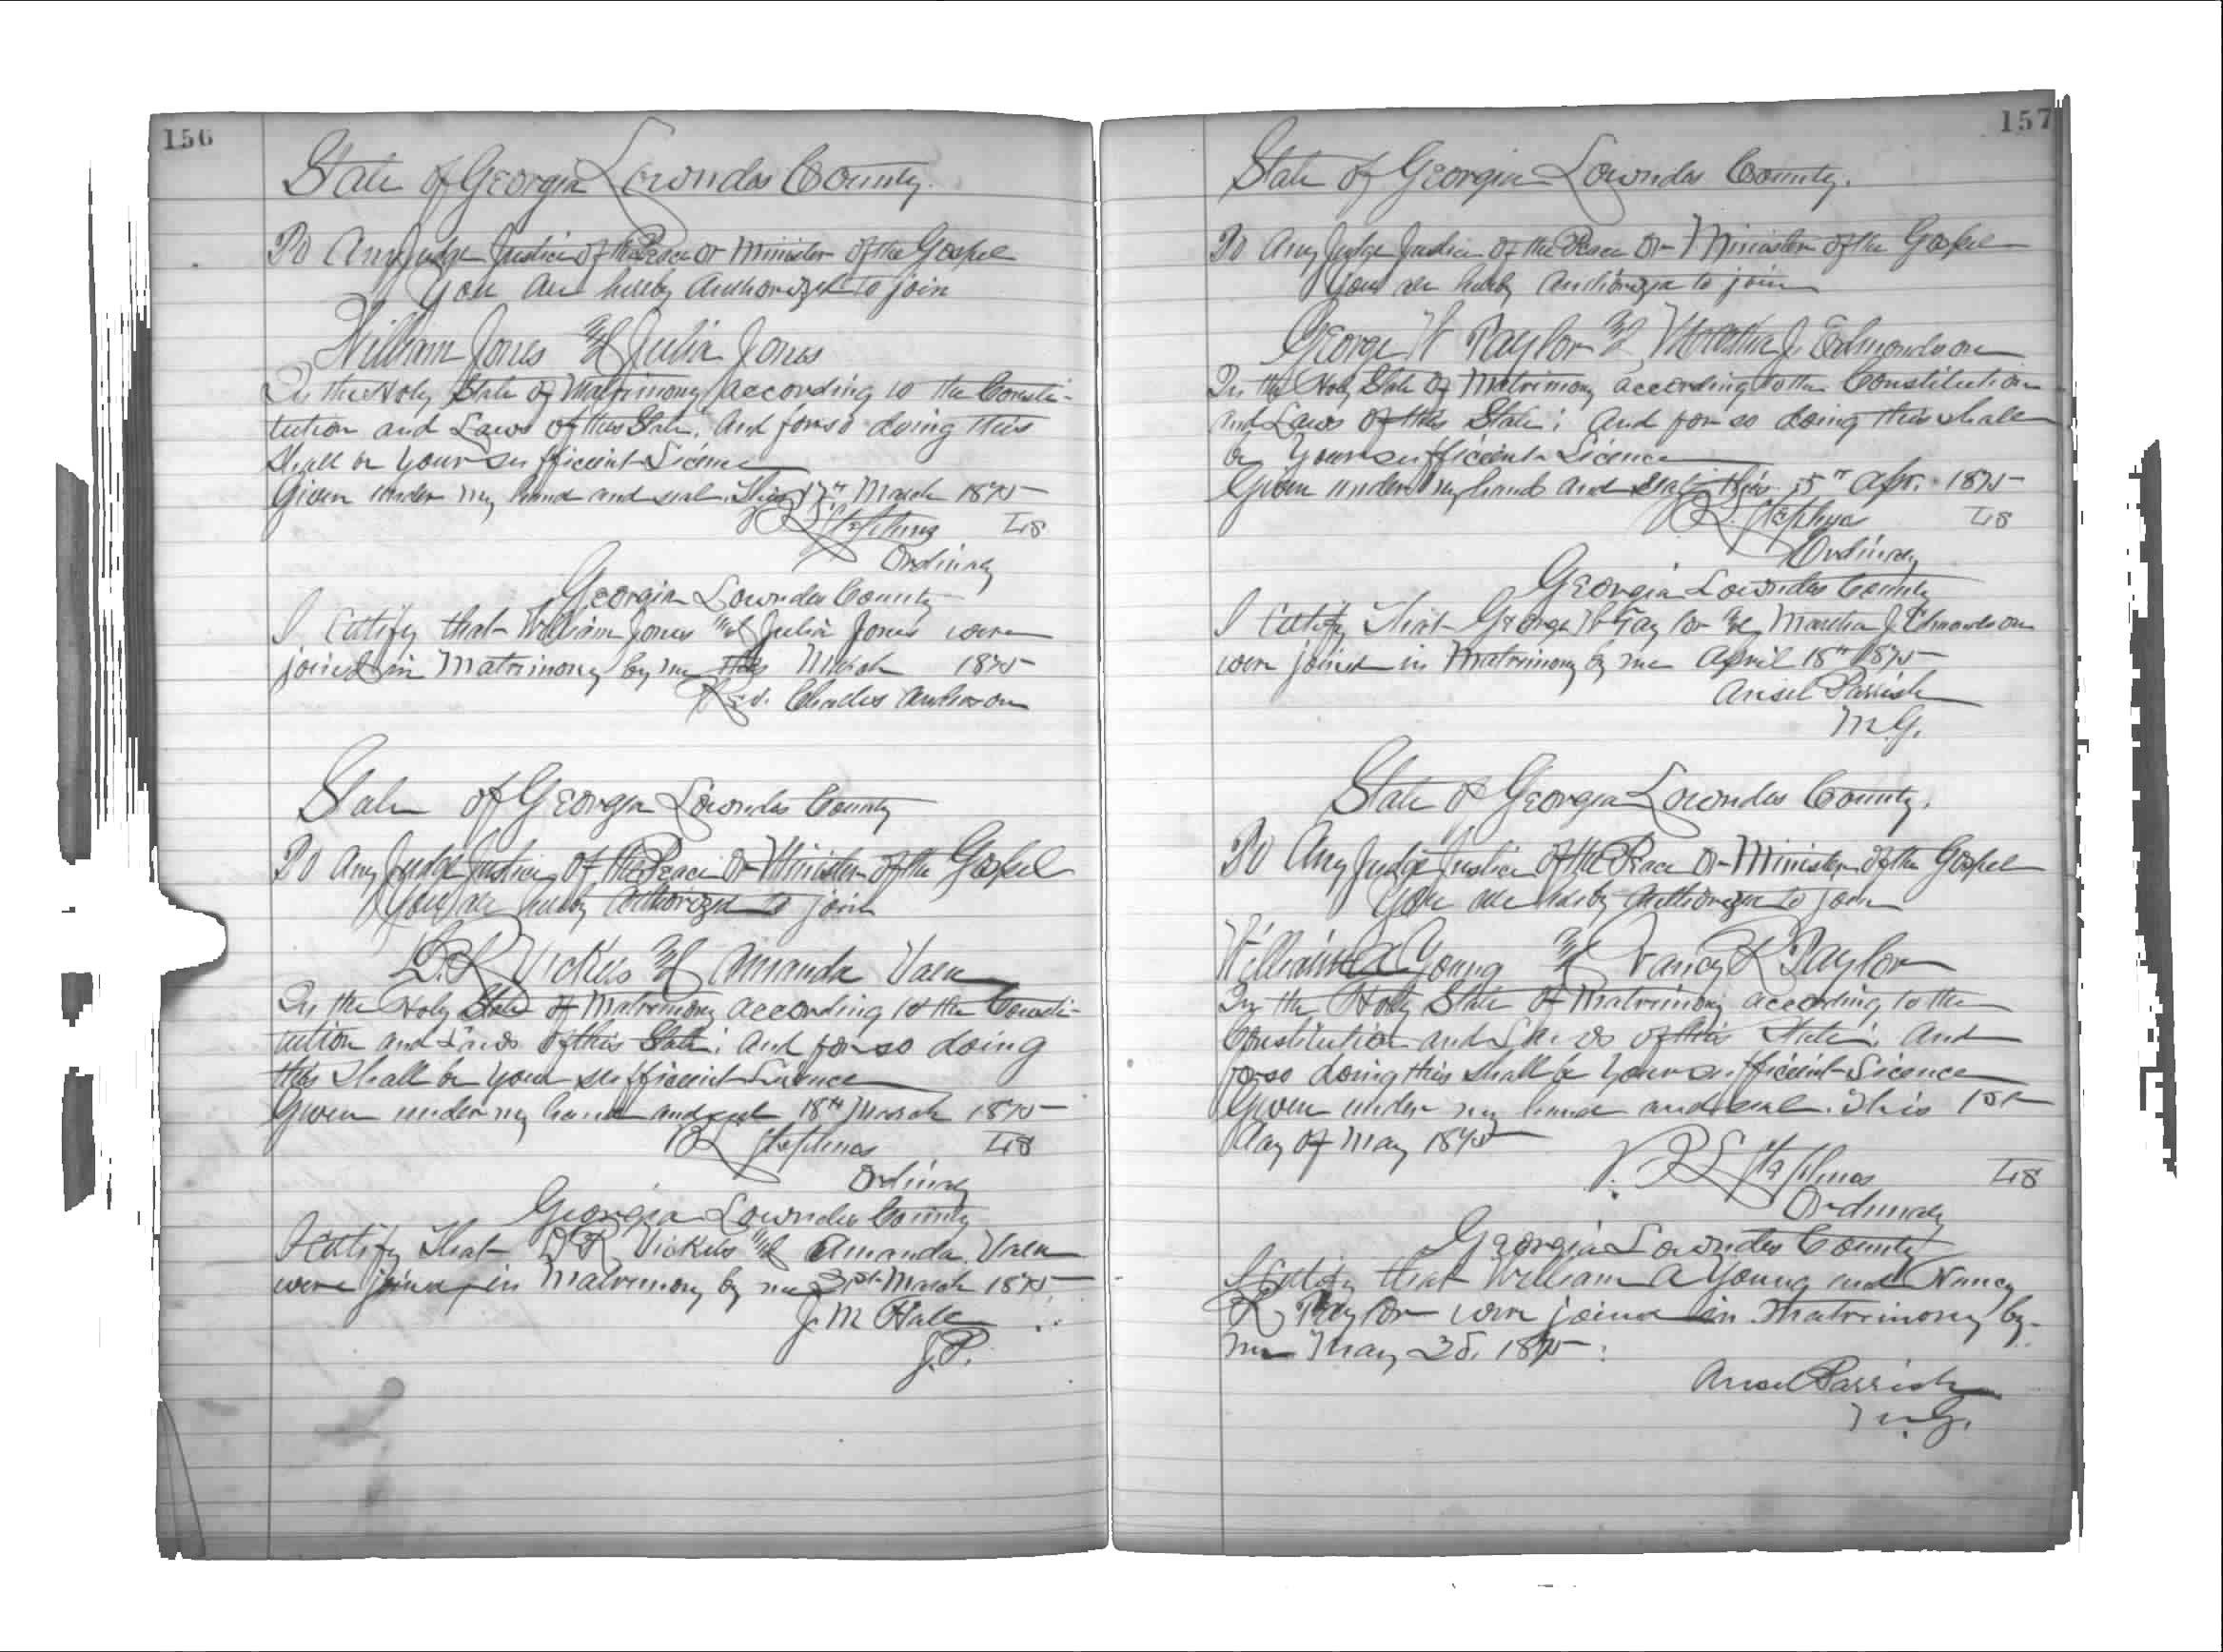 156
State of Georgia Lowndes County.
To Any Judge Justice of the Peace or Minister of the Gospel
You are hereby Authorized to join
William Jones and Julia Jones
In the Holy State of Matrimony according to the Consti-
tution and Laws of this State; and for so doing this
shall be your sufficient Licence
Given under my hand and seal. This 17th March 1875
Stephens LS
Ordinary
Georgia Lowndes County
I Certify that William Jones and Julia Jones were
joined in Matrimony by me this March 1875
Rev. Charles Anderson
State of Georgia Lowndes County
To Any Judge Justice of the Peace or Minister of the Gospel
You are hereby Authorized to join
D. R Vickers and Amanda
In the Holy State of Matrimony according to the Consti-
tution and Laws of this State; and for so doing
this shall be your sufficient Licence
Given under my hand and seal 18th March 1875
Stephens LS
Ordinary
Georgia Lowndes County
I Certify That D R Vickers and Amanda
were joined in Matrimony by me 21st March 1875.
J. M Hall
J. P.
157
State of Georgia Lowndes County.
To Any Judge Justice of the Peace or Minister of the Gospel
You are hereby Authorized to join
George W Taylor and Martha J. Edmondson
In the Holy State of Matrimony according to the Constitution
and Laws of this State; and for so doing this shall
be your sufficient Licence
Given under my hand and seal this 15th Apr. 1875
Stephens LS
Ordinary
Georgia Lowndes County
I Certify That George W Taylor and Martha J. Edmondson
were joined in Matrimony by me April 18th 1875
Ansel Parrish
M. G.
State of Georgia Lowndes County.
To Any Judge Justice of the Peace or Minister of the Gospel
You are hereby Authorized to join
William A Young and Nancy R Taylor
In the Holy State of Matrimony according to the
Constitution and Laws of this State; and
for so doing this shall be your sufficient Licence
Given under my hand and seal. This 1st
day of May 1875
Stephens LS
Ordinary
Georgia Lowndes County
I Certify that William A Young and Nancy
R Taylor were joined in Matrimony by
me May 1875
Ansel Parrish
M. G.